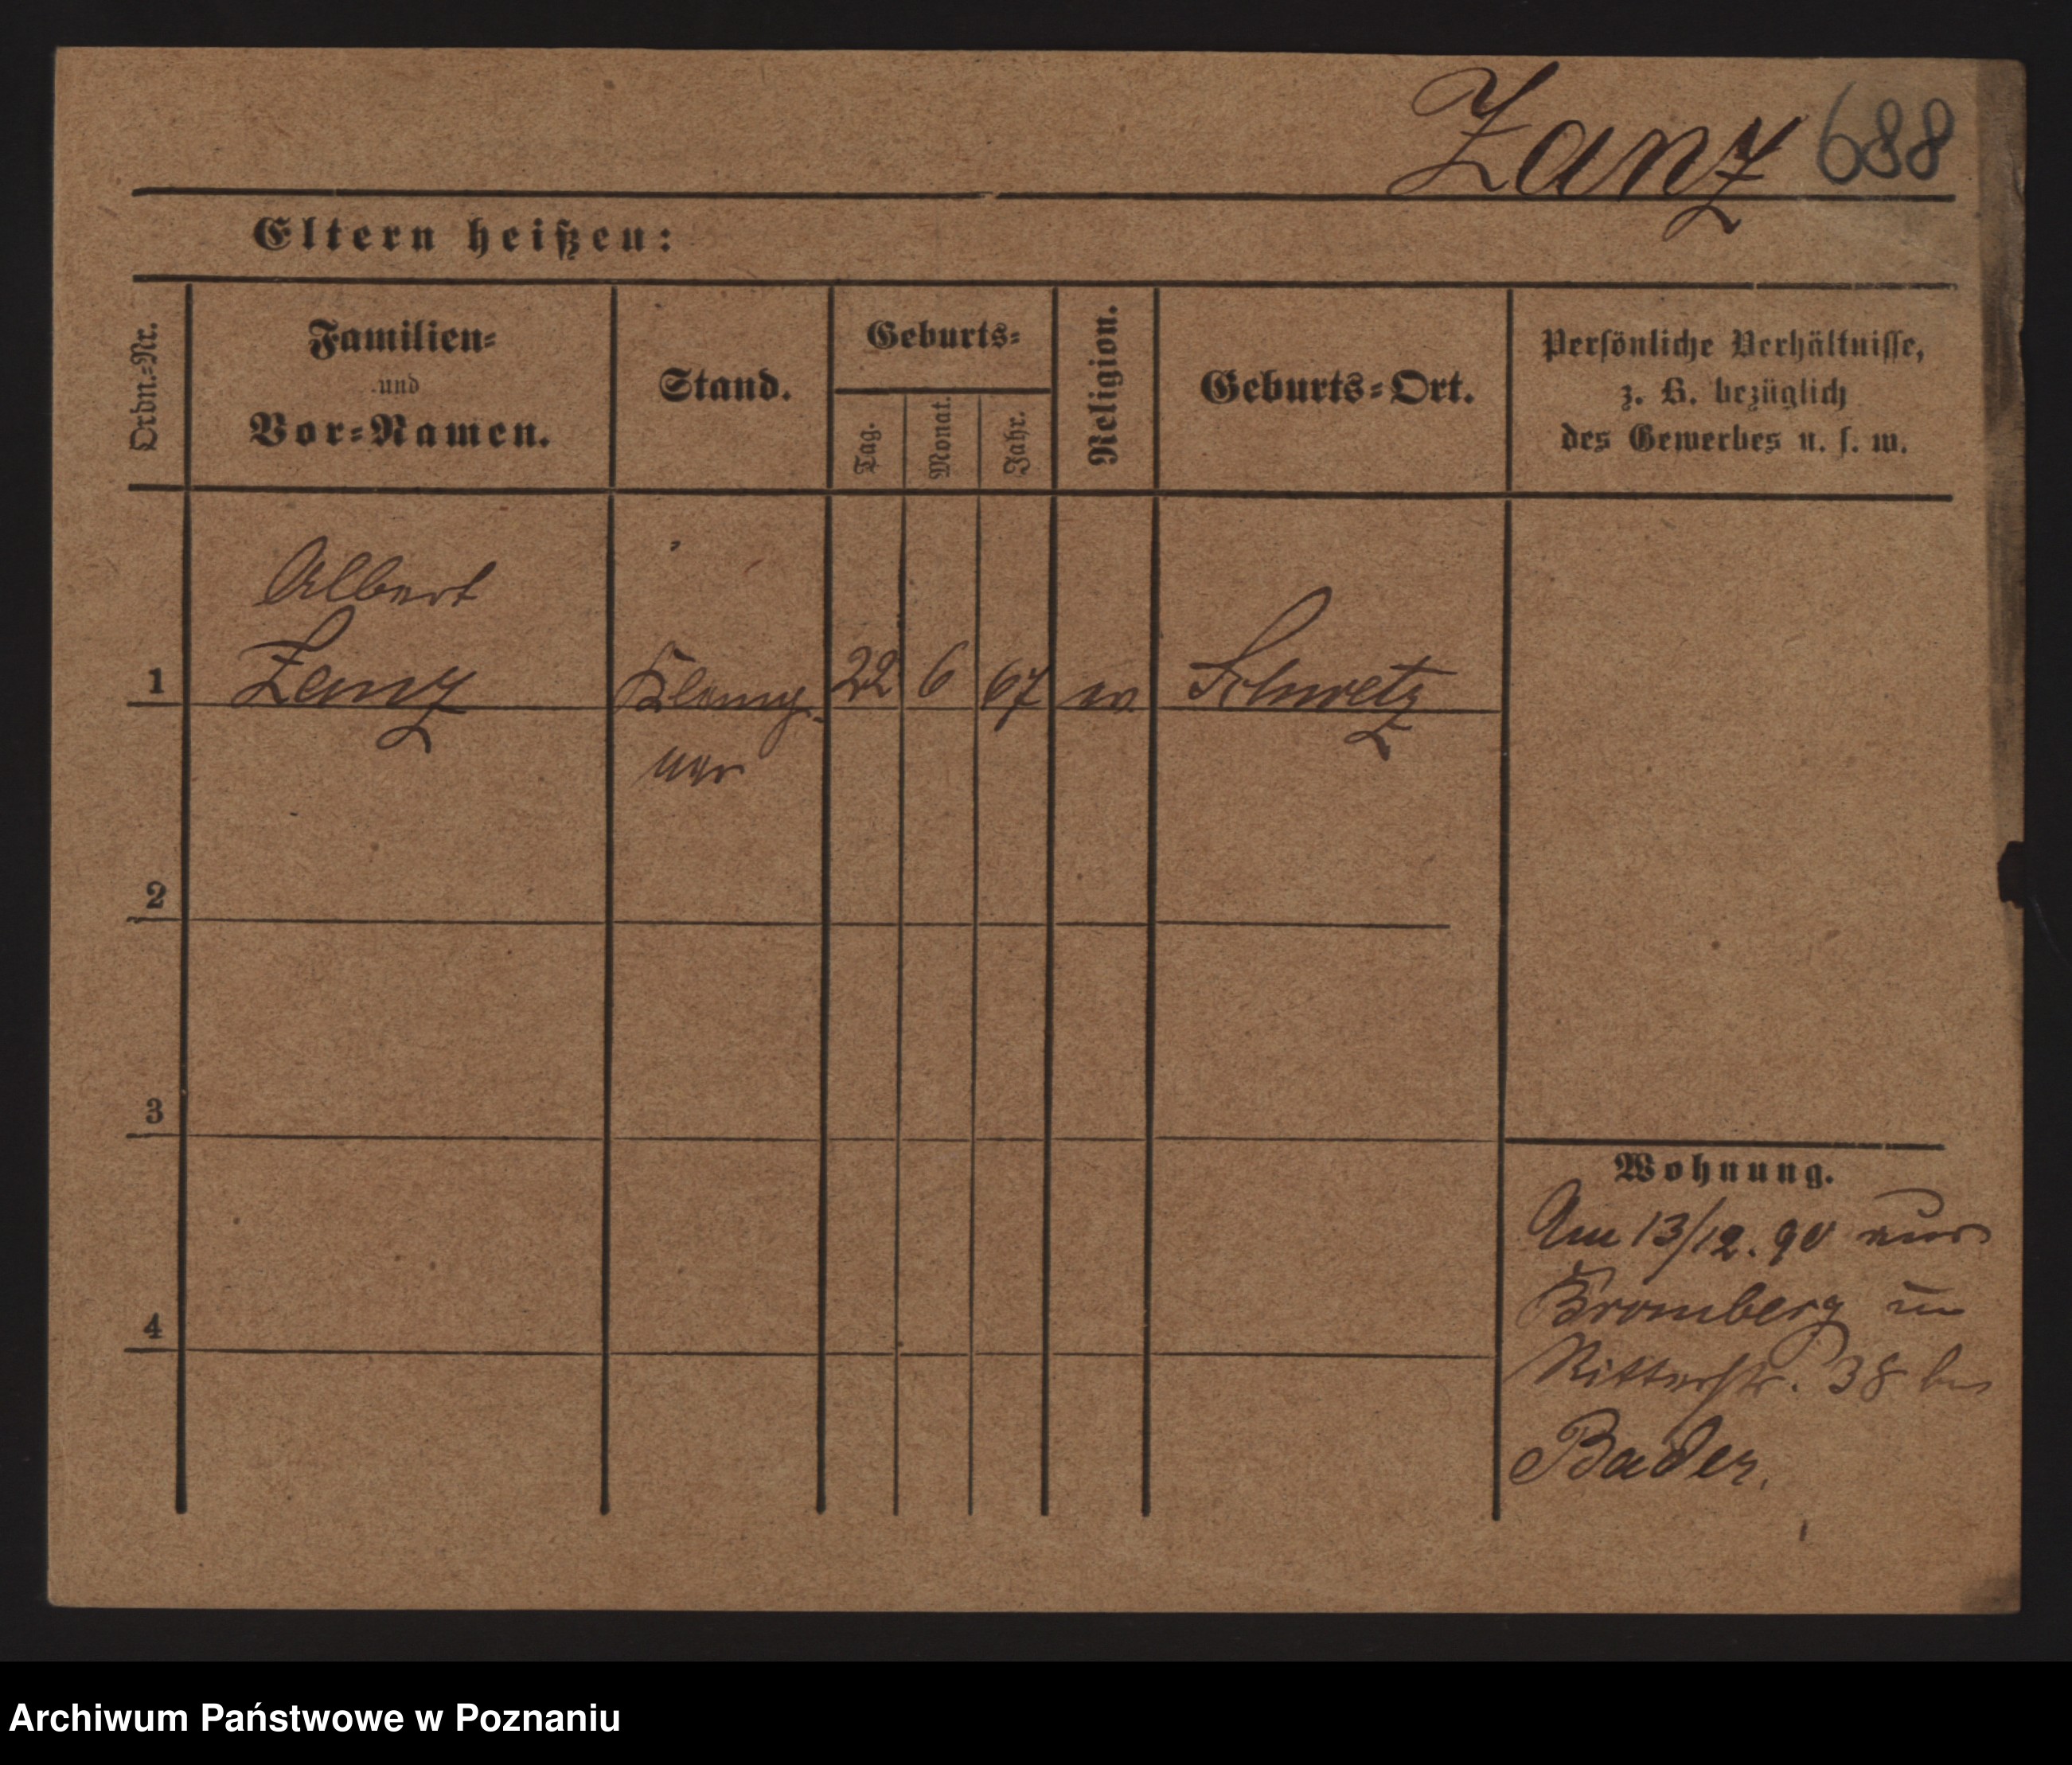 Zanz 688
Eltern heißen:
Ordn.-Nr.
Familien-
und
Vor-Namen.
Stand.
Geburts-
Tag.
Monat.
Jahr.
Religion.
Geburts-Ort.
Persönliche Verhältnisse,
z. B. bezüglich
des Gewerbes u. s. w.
Albert
1 Zanz Klemp- 22 6 67 ev. Schwetz
ner
2
3
4
Wohnung.
Am 13/12. 90 aus
Bromberg in
Ritterstr. 38 bei
Bader.
Archiwum Państwowe w Poznaniu